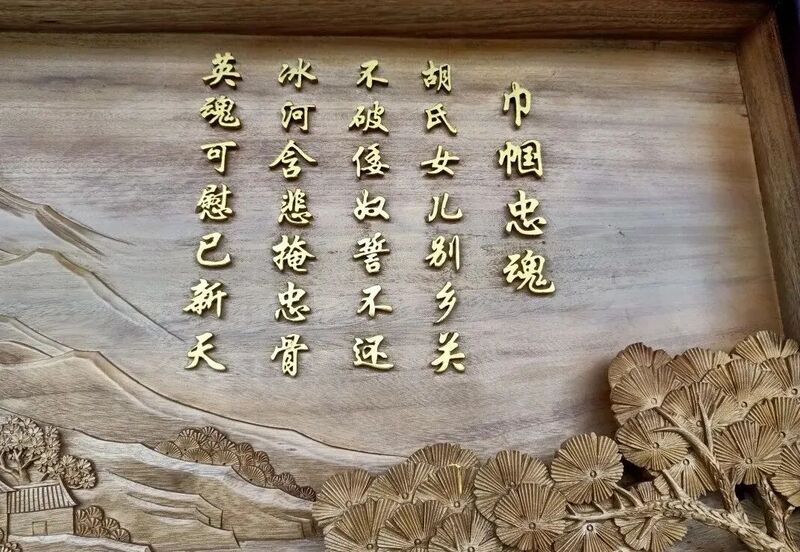 巾帼忠魂
胡氏女儿别乡关
不破倭奴誓不还
冰河含悲掩忠骨
英魂可慰已新天